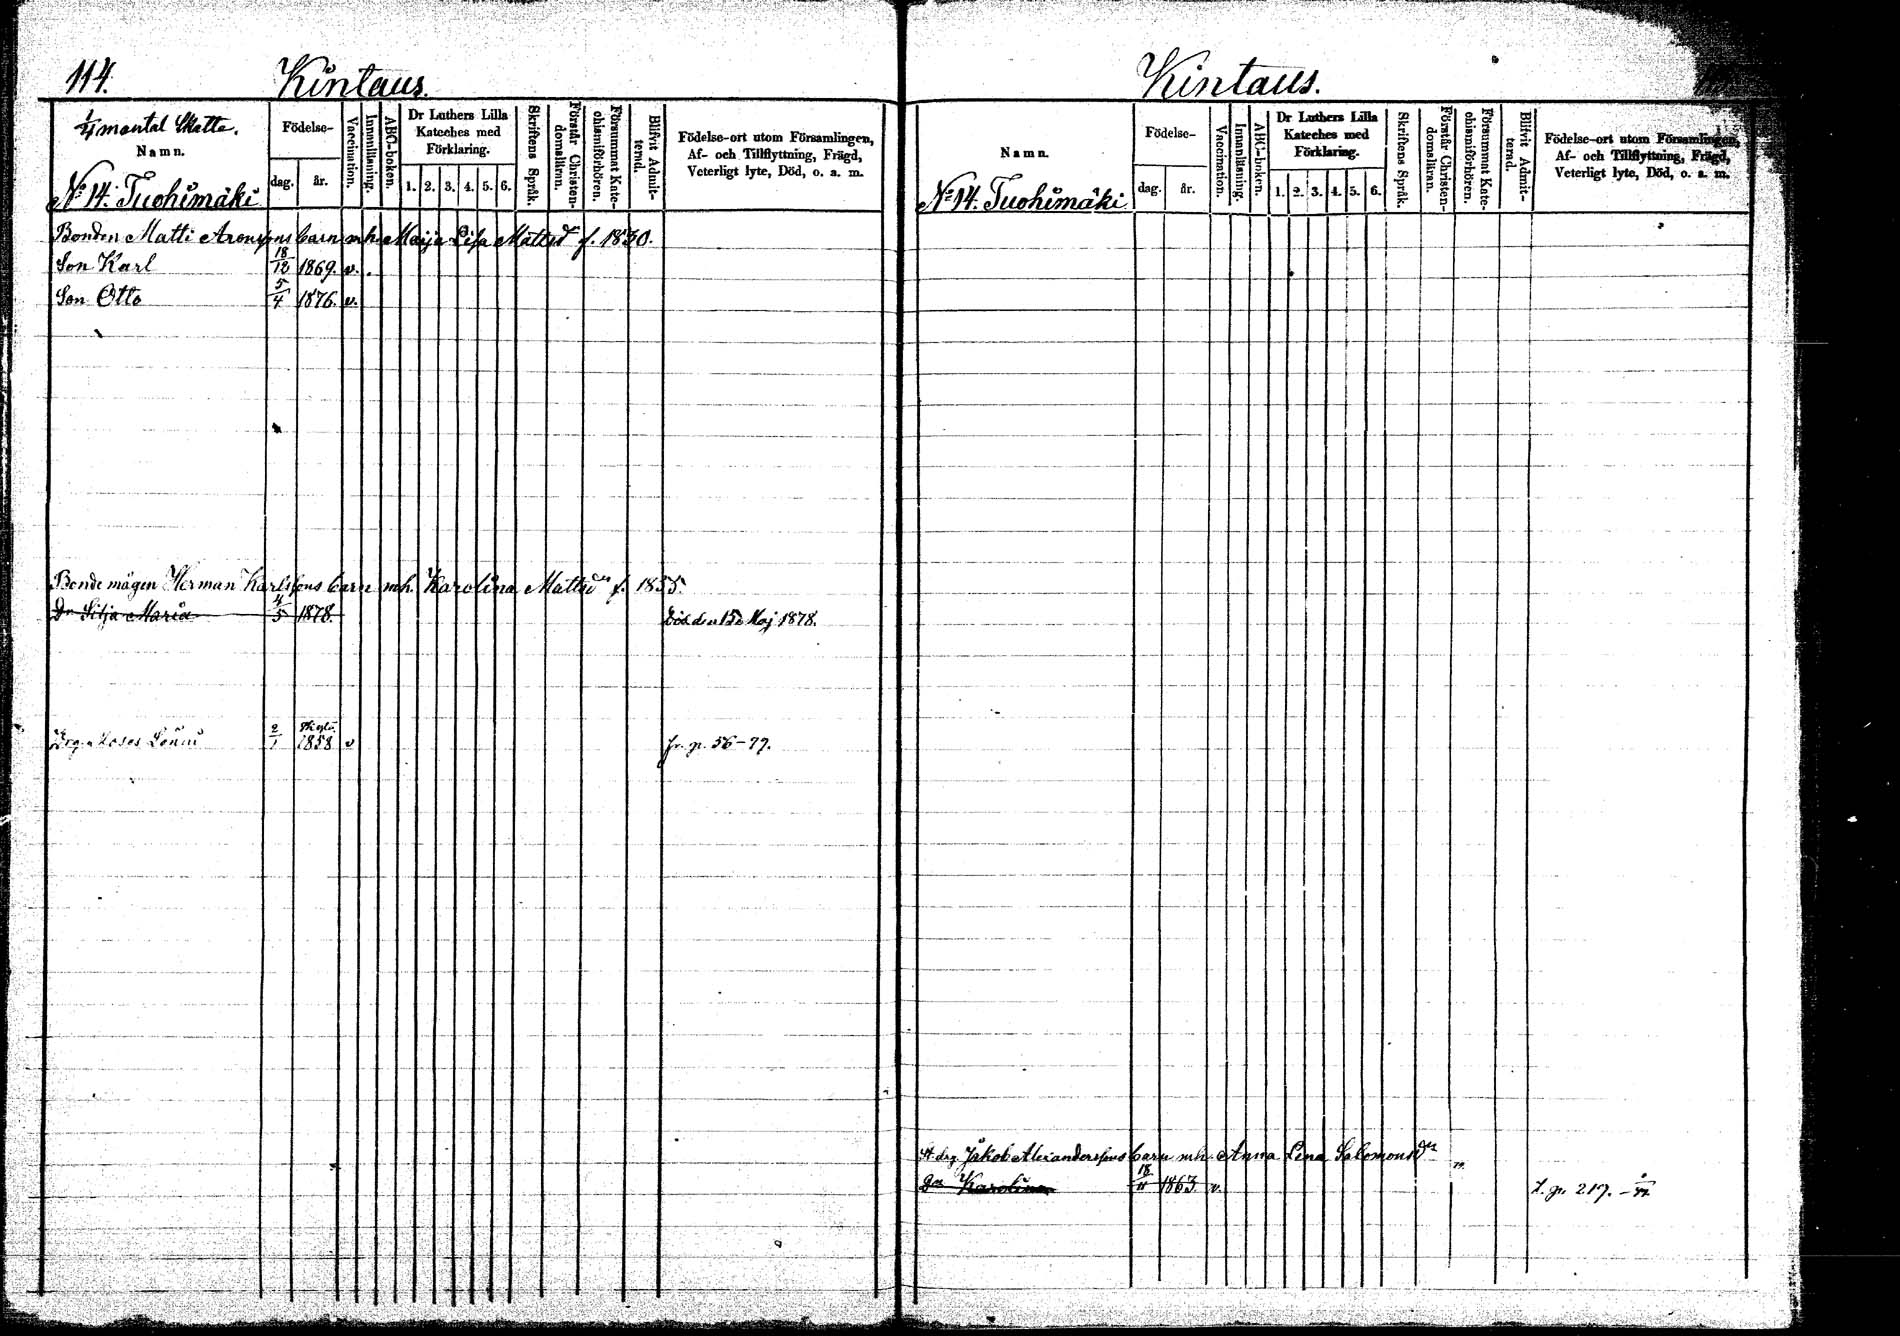 114.
Kintaus.
1/4 mantal Skatte.
Namn.
Födelse-
dag.
år.
Vaccination.
Innanläsning.
ABC-boken.
Dr Luthers Lilla
Kateches med
Förklaring.
1. 2. 3. 4. 5. 6.
Skriftens Språk.
Förstår Christen-
domsläran.
Försummat Kate-
chismiförhören.
Blifvit Admit-
terad.
Födelse-ort utom Församlingen,
Af- och Tillflyttning, Frägd,
Veterligt lyte, Död, o. s. m.
No 14. Tuohimäki
Bonden Matti Aronssons barn mh. Maija Lisa Mattsdr f. 1830.
Son Karl 18/12 1869. v.
Son Otto 5/4 1876. v.
Bonde mågen Herman Karlssons barn mh. Karolina Mattsdr f. 1855.
Dr Silja Maria 4/5 1878. Död den 15 Maj 1878.
Drg. Moses 2/1 1858 v fr. p. 56-77.
Kintaus.
Namn.
Födelse-
dag.
år.
Vaccination.
Innanläsning.
ABC-boken.
Dr Luthers Lilla
Kateches med
Förklaring.
1. 2. 3. 4. 5. 6.
Skriftens Språk.
Förstår Christen-
domsläran.
Försummat Kate-
chismiförhören.
Blifvit Admit-
terad.
Födelse-ort utom Församlingen,
Af- och Tillflyttning, Frägd,
Veterligt lyte, Död, o. s. m.
No 14. Tuohimäki
St. drg Jakob Alexanderssons barn mh. Anna Lena Salomonsdr
Dr Karolina 18/11 1863. v. t. p. 217.